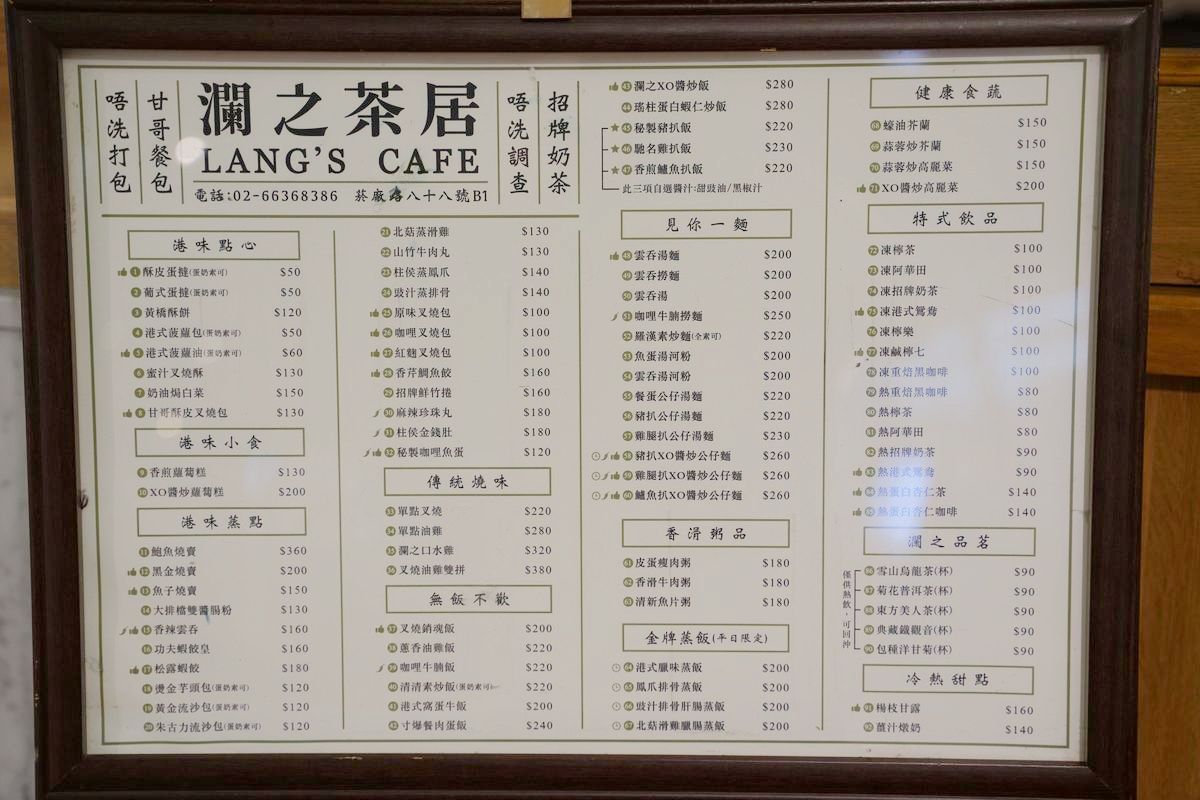 唔洗打包
甘哥餐包
瀾之茶居
LANG'S CAFE
電話:02-66368386 菸廠路八十八號B1
唔洗調查
招牌奶茶
港味點心
1 酥皮蛋撻(蛋奶素可) $50
2 葡式蛋撻(蛋奶素可) $50
3 黃橋酥餅 $120
4 港式菠蘿包(蛋奶素可) $50
5 港式菠蘿油(蛋奶素可) $60
6 蜜汁叉燒酥 $130
7 奶油焗白菜 $150
8 甘哥酥皮叉燒包 $130
港味小食
9 香煎蘿蔔糕 $130
10 XO醬炒蘿蔔糕 $200
港味蒸點
11 鮑魚燒賣 $360
12 黑金燒賣 $200
13 魚子燒賣 $150
14 大排檔雙醬腸粉 $130
15 香辣雲吞 $160
16 功夫蝦餃皇 $160
17 松露蝦餃 $180
18 燙金芋頭包(蛋奶素可) $120
19 黃金流沙包(蛋奶素可) $120
20 朱古力流沙包(蛋奶素可) $120
21 北菇蒸滑雞 $130
22 山竹牛肉丸 $130
23 柱侯蒸鳳爪 $140
24 豉汁蒸排骨 $140
25 原味叉燒包 $100
26 咖哩叉燒包 $100
27 紅麴叉燒包 $100
28 香芹鯛魚餃 $160
29 招牌鮮竹捲 $160
30 麻辣珍珠丸 $180
31 柱侯金錢肚 $180
32 秘製咖哩魚蛋 $120
傳統燒味
33 單點叉燒 $220
34 單點油雞 $280
35 瀾之口水雞 $320
36 叉燒油雞雙拼 $380
無飯不歡
37 叉燒銷魂飯 $200
38 蔥香油雞飯 $220
39 咖哩牛腩飯 $220
40 清清素炒飯(蛋奶素可) $220
41 港式窩蛋牛飯 $200
42 寸爆餐肉蛋飯 $240
43 瀾之XO醬炒飯 $280
44 瑤柱蛋白蝦仁炒飯 $280
45 秘製豬扒飯 $220
46 馳名雞扒飯 $230
47 香煎鱸魚扒飯 $220
此三項自選醬汁:甜豉油/黑椒汁
見你一麵
48 雲吞湯麵 $200
49 雲吞撈麵 $200
50 雲吞湯 $200
51 咖哩牛腩撈麵 $250
52 羅漢素炒麵(全素可) $220
53 魚蛋湯河粉 $200
54 雲吞湯河粉 $200
55 餐蛋公仔湯麵 $220
56 豬扒公仔湯麵 $220
57 雞腿扒公仔湯麵 $230
58 豬扒XO醬炒公仔麵 $260
59 雞腿扒XO醬炒公仔麵 $260
60 鱸魚扒XO醬炒公仔麵 $260
香滑粥品
61 皮蛋瘦肉粥 $180
62 香滑牛肉粥 $180
63 清新魚片粥 $180
金牌蒸飯(平日限定)
64 港式臘味蒸飯 $200
65 鳳爪排骨蒸飯 $200
66 豉汁排骨肝腸蒸飯 $200
67 北菇滑雞臘腸蒸飯 $200
健康食蔬
68 蠔油芥蘭 $150
69 蒜蓉炒芥蘭 $150
70 蒜蓉炒高麗菜 $150
71 XO醬炒高麗菜 $200
特式飲品
72 凍檸茶 $100
73 凍阿華田 $100
74 凍招牌奶茶 $100
75 凍港式鴛鴦 $100
76 凍檸樂 $100
77 凍鹹檸七 $100
78 凍重焙黑咖啡 $100
79 熱重焙黑咖啡 $80
80 熱檸茶 $80
81 熱阿華田 $80
82 熱招牌奶茶 $90
83 熱港式鴛鴦 $90
84 熱蛋白杏仁茶 $140
85 熱蛋白杏仁咖啡 $140
瀾之品茗
僅供熱飲，可回沖
86 雪山烏龍茶(杯) $90
87 菊花普洱茶(杯) $90
88 東方美人茶(杯) $90
89 典藏鐵觀音(杯) $90
90 包種洋甘菊(杯) $90
冷熱甜點
91 楊枝甘露 $160
92 薑汁燉奶 $140